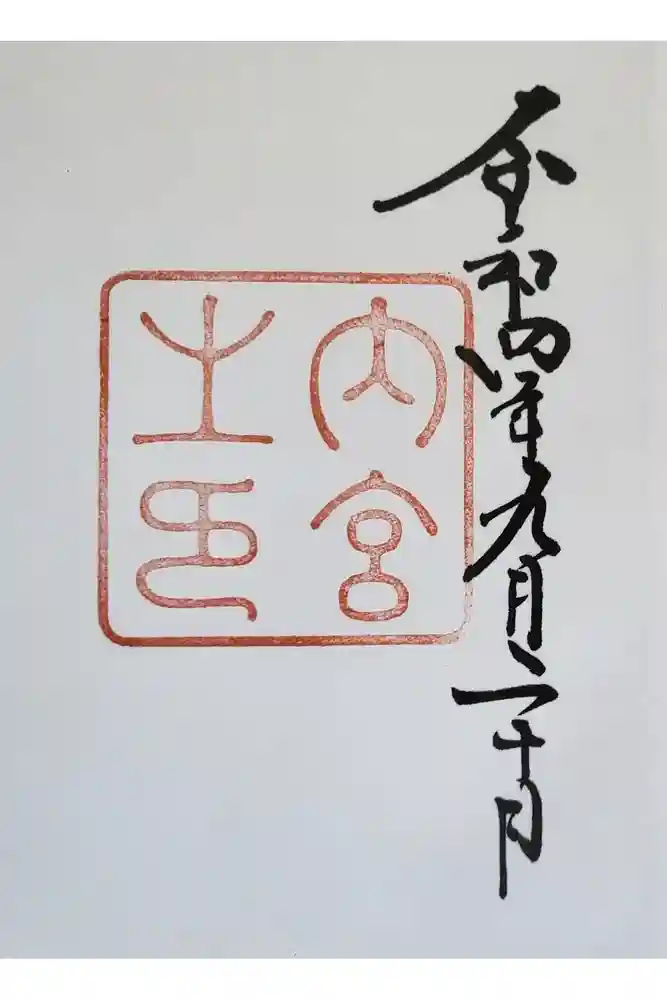 令和四年九月二十日
内宮
之印